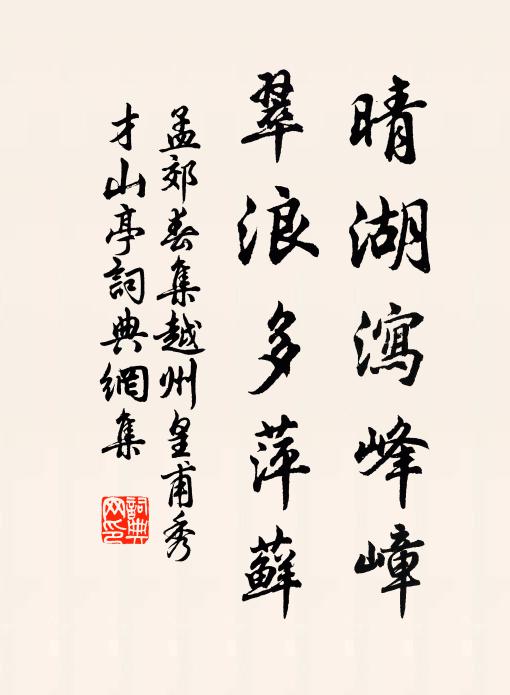 晴湖瀉峰嶂
翠浪多萍蘚
孟郊春集越州皇甫秀
才山亭詞典網集
詞典
网印